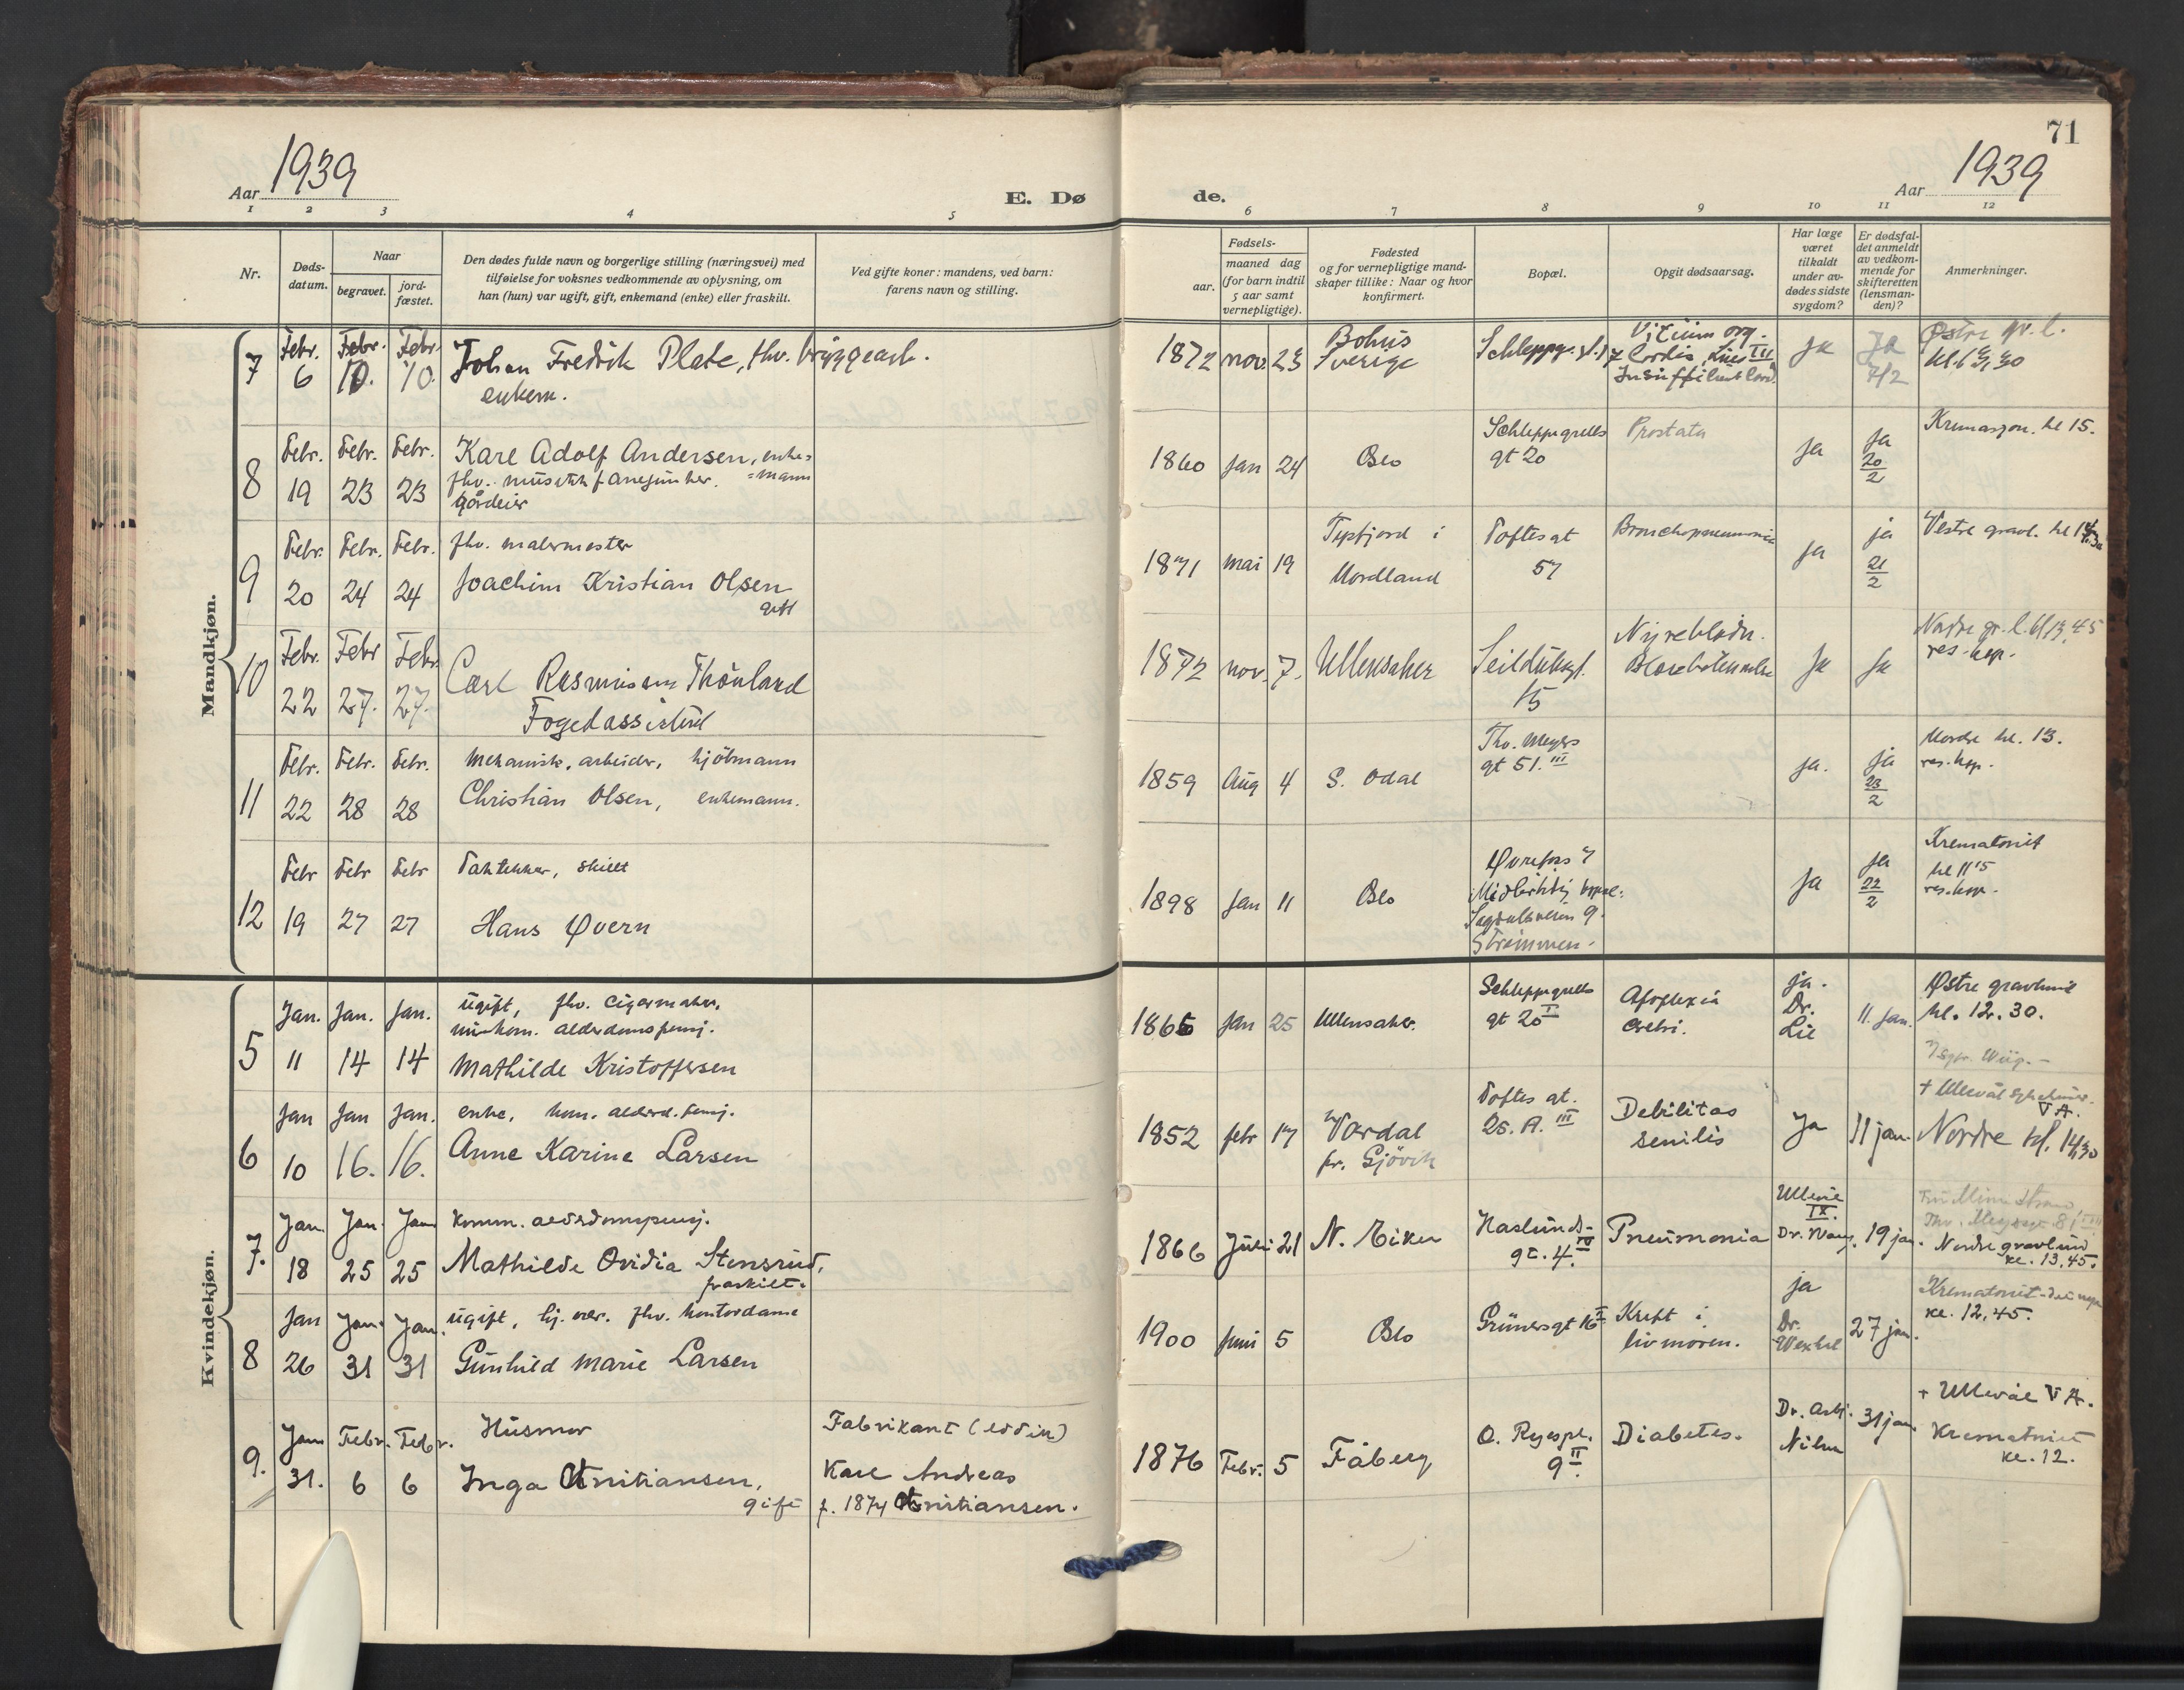 71
Aar 1939
E. Dø
de.
Aar 1939
1 2 3 4 5 6 7 8 9 10 11 12
Nr.
Døds-
datum.
Naar
begravet.
jord-
fæstet.
Den dødes fulde navn og borgerlige stilling (næringsvei) med
tilføielse for voksnes vedkommende av oplysning, om
han (hun) var ugift, gift, enkemand (enke) eller fraskilt.
Ved gifte koner: mandens, ved barn:
farens navn og stilling.
Fødsels-
aar.
maaned dag
(for barn indtil
5 aar samt
vernepligtige).
Fødested
og for vernepligtige mand-
skaper tillike: Naar og hvor
konfirmert.
Bopæl.
Opgit dødsaarsag.
Har læge
været
tilkaldt
under av-
dødes sidste
sygdom?
Er dødsfal-
det anmeldt
av vedkom-
mende for
skifteretten
(lensman-
den)?
Anmerkninger.
Mandkjøn.
7
Febr. 6
Febr. 10.
Febr. 10.
Johan Fredrik Plate, fhv. bryggearb.
enkem.
1872 nov. 23
Bohus
Sverige
Schleppgr. gt. 17
Vitium org.
Cordis
Ja
Ja
7/2
Østre gr. l.
8
Febr. 19
Febr. 23
Febr. 23
Karl Adolf Andersen, enke-
mann
gårdeier
1860 Jan 24
Oslo
Schleppegrells
gt 20
Prostata
ja
ja
20
2
Kremasjon. kl 15.
9
Febr. 20
Febr. 24
Febr. 24
fhv. malermester
Joachim Kristian Olsen
gift
1871 mai 19
Tysfjord i
Nordland
Toftesgt
57
Bronchopneumonia
ja
ja
21
2
Vestre gravl. kl 14,30
10
Febr. 22
Febr 27.
Febr. 27.
Carl Rasmussen Thönland
Fogedassistent
1872 nov. 7.
Ullensaker
Seilduksgt.
15
Nyreblødn.
Ja
Ja
Nordre gr. l. kl 13,45
res. kap.
11
Febr. 22
Febr. 28
Febr. 28
Mekanisk. arbeider, kjöbmann
Christian Olsen, enkemann.
1859 Aug 4
S. Odal
Thv. Meyers
gt 51. III
ja.
ja
23
2
Nordre kl. 13.
res. kap.
12
Febr 19
Febr 27
Febr 27
Taktekker, skilt
Hans Øvern
1898 Jan 11
Oslo
Øvrefoss 7
Midlertidig bopæl:
Sagdalsveien 9.
Strømmen.
ja
ja
22
2
Krematoriet
kl 11 15
res. kap.
Kvindekjøn.
5
Jan. 11
Jan. 14
Jan. 14
ugift, fhv. cigarmaker,
alderdomspensj.
Mathilde Kristoffersen
1865 Jan 25
Ullensaker.
Schleppegrells
gt 20 I
Apoplexia
cerebri.
ja.
Dr.
Lie
11. Jan.
Østre gravlund
kl. 12.30.
6
Jan 10
Jan 16.
Jan. 16.
enke, kom. alderd. pensj.
Anne Karine Larsen
1852 febr 17
Vardal
pr. Gjövik
Toftes gt.
25. A. III
Debilitas
senilis
Ja
11 jan.
+ Ullevål sykehus.
V A.
Nordre kl. 14,30
7.
Jan. 18
Jan. 25
Jan 25
Komm. alderdomspensj.
Mathilde Ovidia Stensrud,
fraskilt.
1866 Juli 21
N. Eiker
Haslunds-
gt. 4. IV
Pneumonia
Ullevål
IX.
19 jan.
Nordre gravlund
kl. 13,45.
8
Jan 26
Jan. 31
Jan. 31
ugift, hj. vær. fhv. kontordame
Gunhild Marie Larsen
1900 Juni 5
Oslo
Grünersgt 16 II
Kreft i
livmoren.
ja
Dr.
Wexhel
27 jan.
Krematoriet
kl. 12,45.
9.
Jan 31.
Febr. 6
Febr. 6
Husmor
Inga Kristiansen,
gift
Fabrikant
Karl Andreas
f. 1874 Kristiansen.
1876 Febr. 5
Fåberg
O. Ryespl.
9 II
Diabetes.
31 jan.
+ Ullevål V A.
Krematoriet
kl. 12.